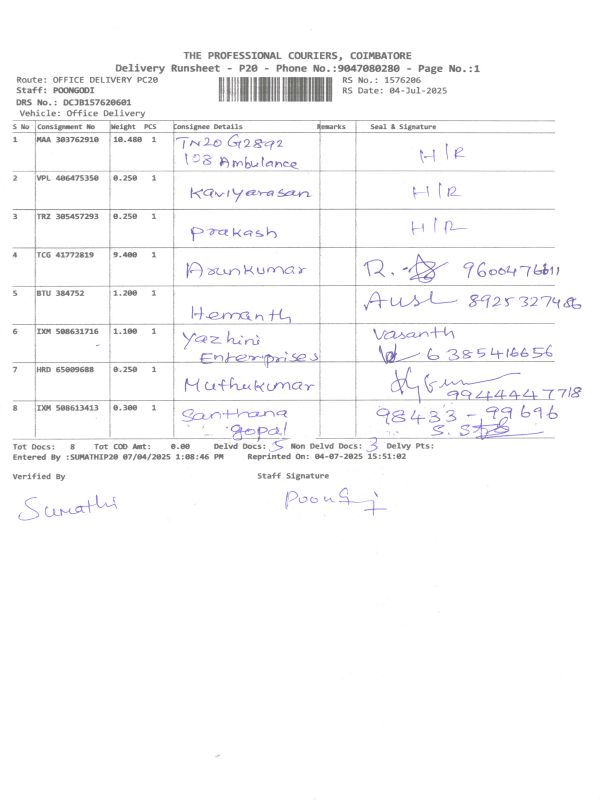 THE PROFESSIONAL COURIERS, COIMBATORE
Delivery Runsheet - P20 - Phone No.:9047080280 - Page No.:1
Route: OFFICE DELIVERY PC20 RS No.: 1576206
Staff: POONGODI RS Date: 04-Jul-2025
DRS No.: DCJB157620601
Vehicle: Office Delivery
S No Consignment No Weight PCS Consignee Details Remarks Seal & Signature
1 MAA 303762910 10.480 1 TN20 G2892
108 Ambulance H/R
2 VPL 406475350 0.250 1 Kaviyarasan H/R
3 TRZ 305457293 0.250 1 Prakash H/R
4 TCG 41772819 9.400 1 Arunkumar R. 9600476611
5 BTU 384752 1.200 1 Hemanth 8925327486
6 IXM 508631716 1.100 1 Yazhini Vasanth
Enterprises 6385416656
7 HRD 65009688 0.250 1 Muthukumar 9944447718
8 IXM 508613413 0.300 1 Santhana 98433-99696
gopal S.
Tot Docs: 8 Tot COD Amt: 0.00 Delvd Docs: 5 Non Delvd Docs: 3 Delvy Pts:
Entered By :SUMATHIP20 07/04/2025 1:08:46 PM Reprinted On: 04-07-2025 15:51:02
Verified By Staff Signature
Sumathi